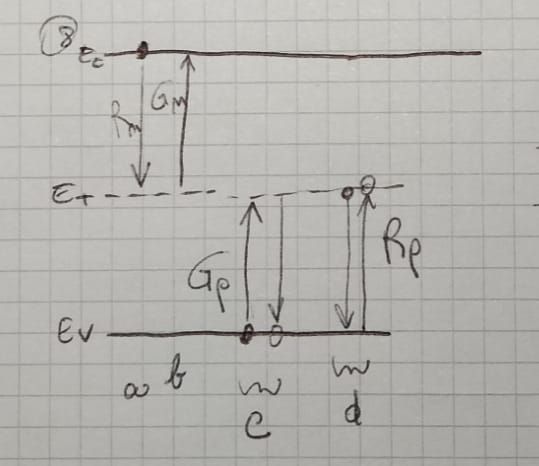 8 Ec
Rn Gn
Et
Gp Rp
Ev
a b c d